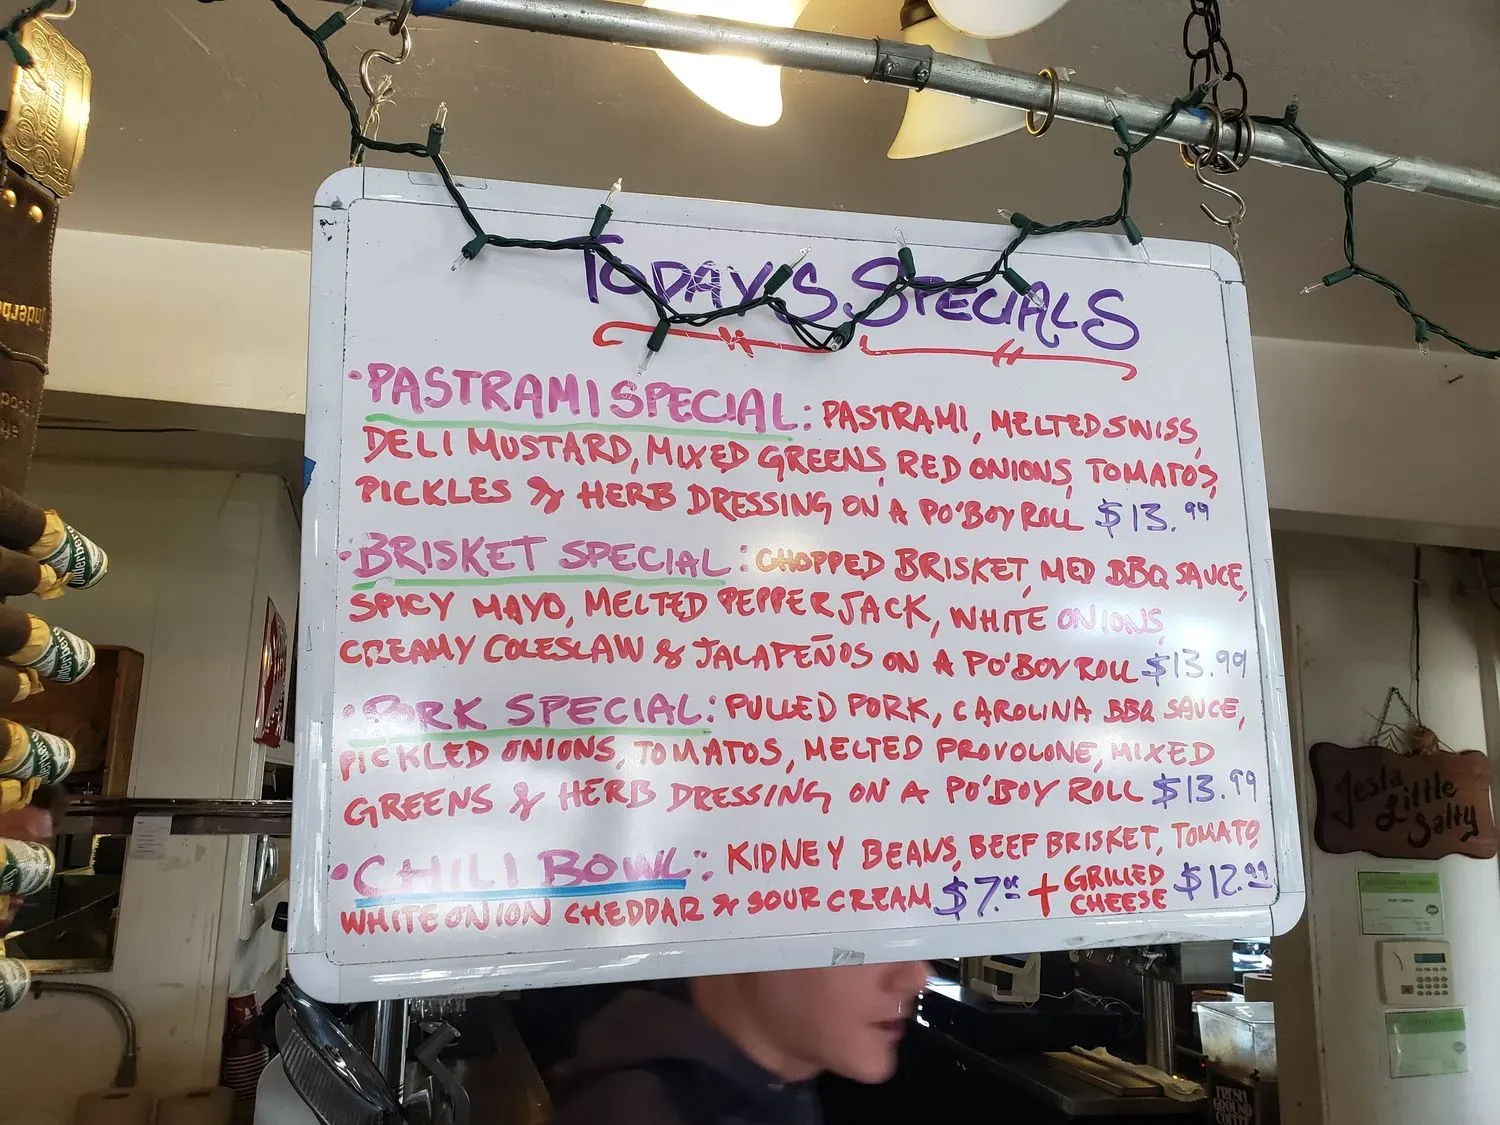 TODAY'S SPECIALS
• PASTRAMI SPECIAL: PASTRAMI, MELTED SWISS,
DELI MUSTARD, MIXED GREENS, RED ONIONS, TOMATOS,
PICKLES & HERB DRESSING ON A PO'BOY ROLL $13.99
• BRISKET SPECIAL: CHOPPED BRISKET, MED BBQ SAUCE,
SPICY MAYO, MELTED PEPPER JACK, WHITE ONIONS,
CREAMY COLESLAW & JALAPEÑOS ON A PO'BOY ROLL $13.99
• PORK SPECIAL: PULLED PORK, CAROLINA BBQ SAUCE,
PICKLED ONIONS, TOMATOS, MELTED PROVOLONE, MIXED
GREENS & HERB DRESSING ON A PO'BOY ROLL $13.99
• CHILI BOWL: KIDNEY BEANS, BEEF BRISKET, TOMATO,
WHITE ONION CHEDDAR & SOUR CREAM $7. + GRILLED CHEESE $12.99
Jesta
Little
Salty
FRESH
GROUND
COFFEE